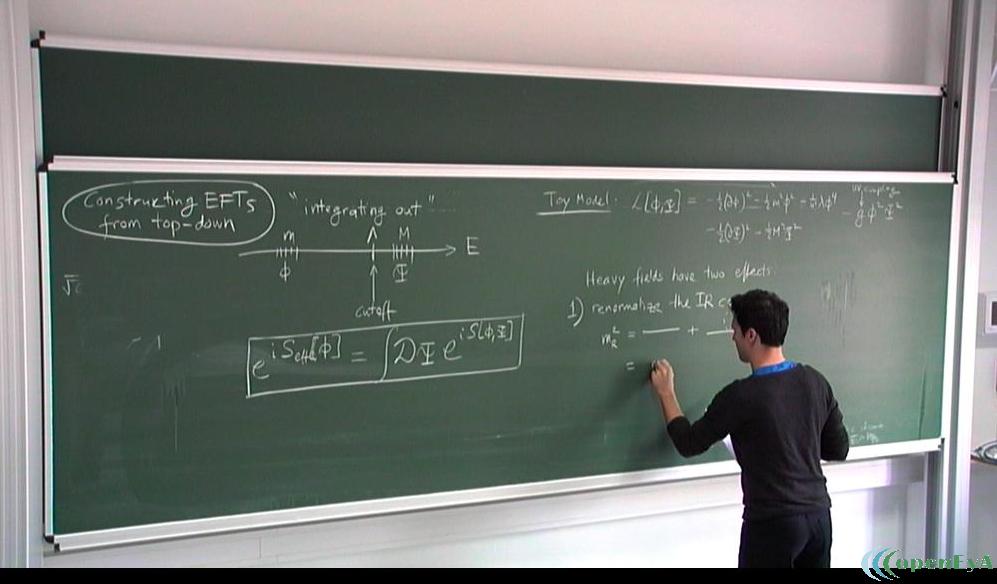 Constructing EFTs
from top-down
"integrating out"
m
M
E
ϕ
Ψ
cutoff
e^{iS_{eff}[ϕ]} = ∫ DΨ e^{iS[ϕ,Ψ]}
Toy Model: L[ϕ,Ψ] = -½(∂ϕ)² - ½m²ϕ² - λϕ⁴
UV coupling
- gϕ²Ψ²
-½(∂Ψ)² - ½M²Ψ²
Heavy fields have two effects:
1) renormalize the IR
m_R² = —— +
=
openEyA